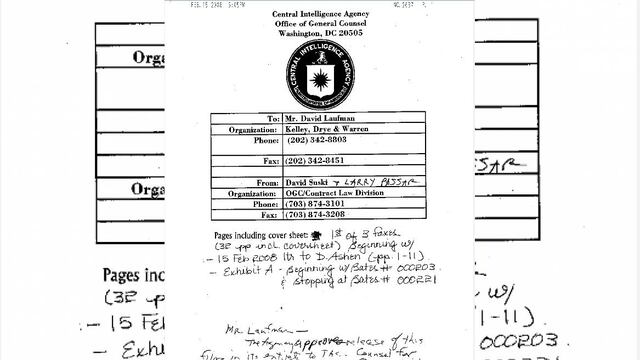 FEB.15 2008 3:05PM NO.3637 P. 1
Central Intelligence Agency
Office of General Counsel
Washington, DC 20505
CENTRAL INTELLIGENCE AGENCY
UNITED STATES OF AMERICA
To: Mr. David Laufman
Organization: Kelley, Drye & Warren
Phone: (202) 342-8803
Fax: (202) 342-8451
From: David Suski & LARRY PASSAR
Organization: OGC/Contract Law Division
Phone: (703) 874-3101
Fax: (703) 874-3208
Pages including cover sheet: 1st of 3 faxes
(32 pp incl coversheet) Beginning w/
- 15 Feb 2008 ltr to D. Ashen (pp. 1-11).
- Exhibit A - Beginning w/Bates # 000203
& Stopping at Bates # 000221
Mr. Laufman—
The Agency approves release of this
filing in its entirety to The Counsel for
Orga
Orga
Pages inc
(32 pp
- 15 Feb
- Exhib
SSAR
w/
1-11).
000203
000221